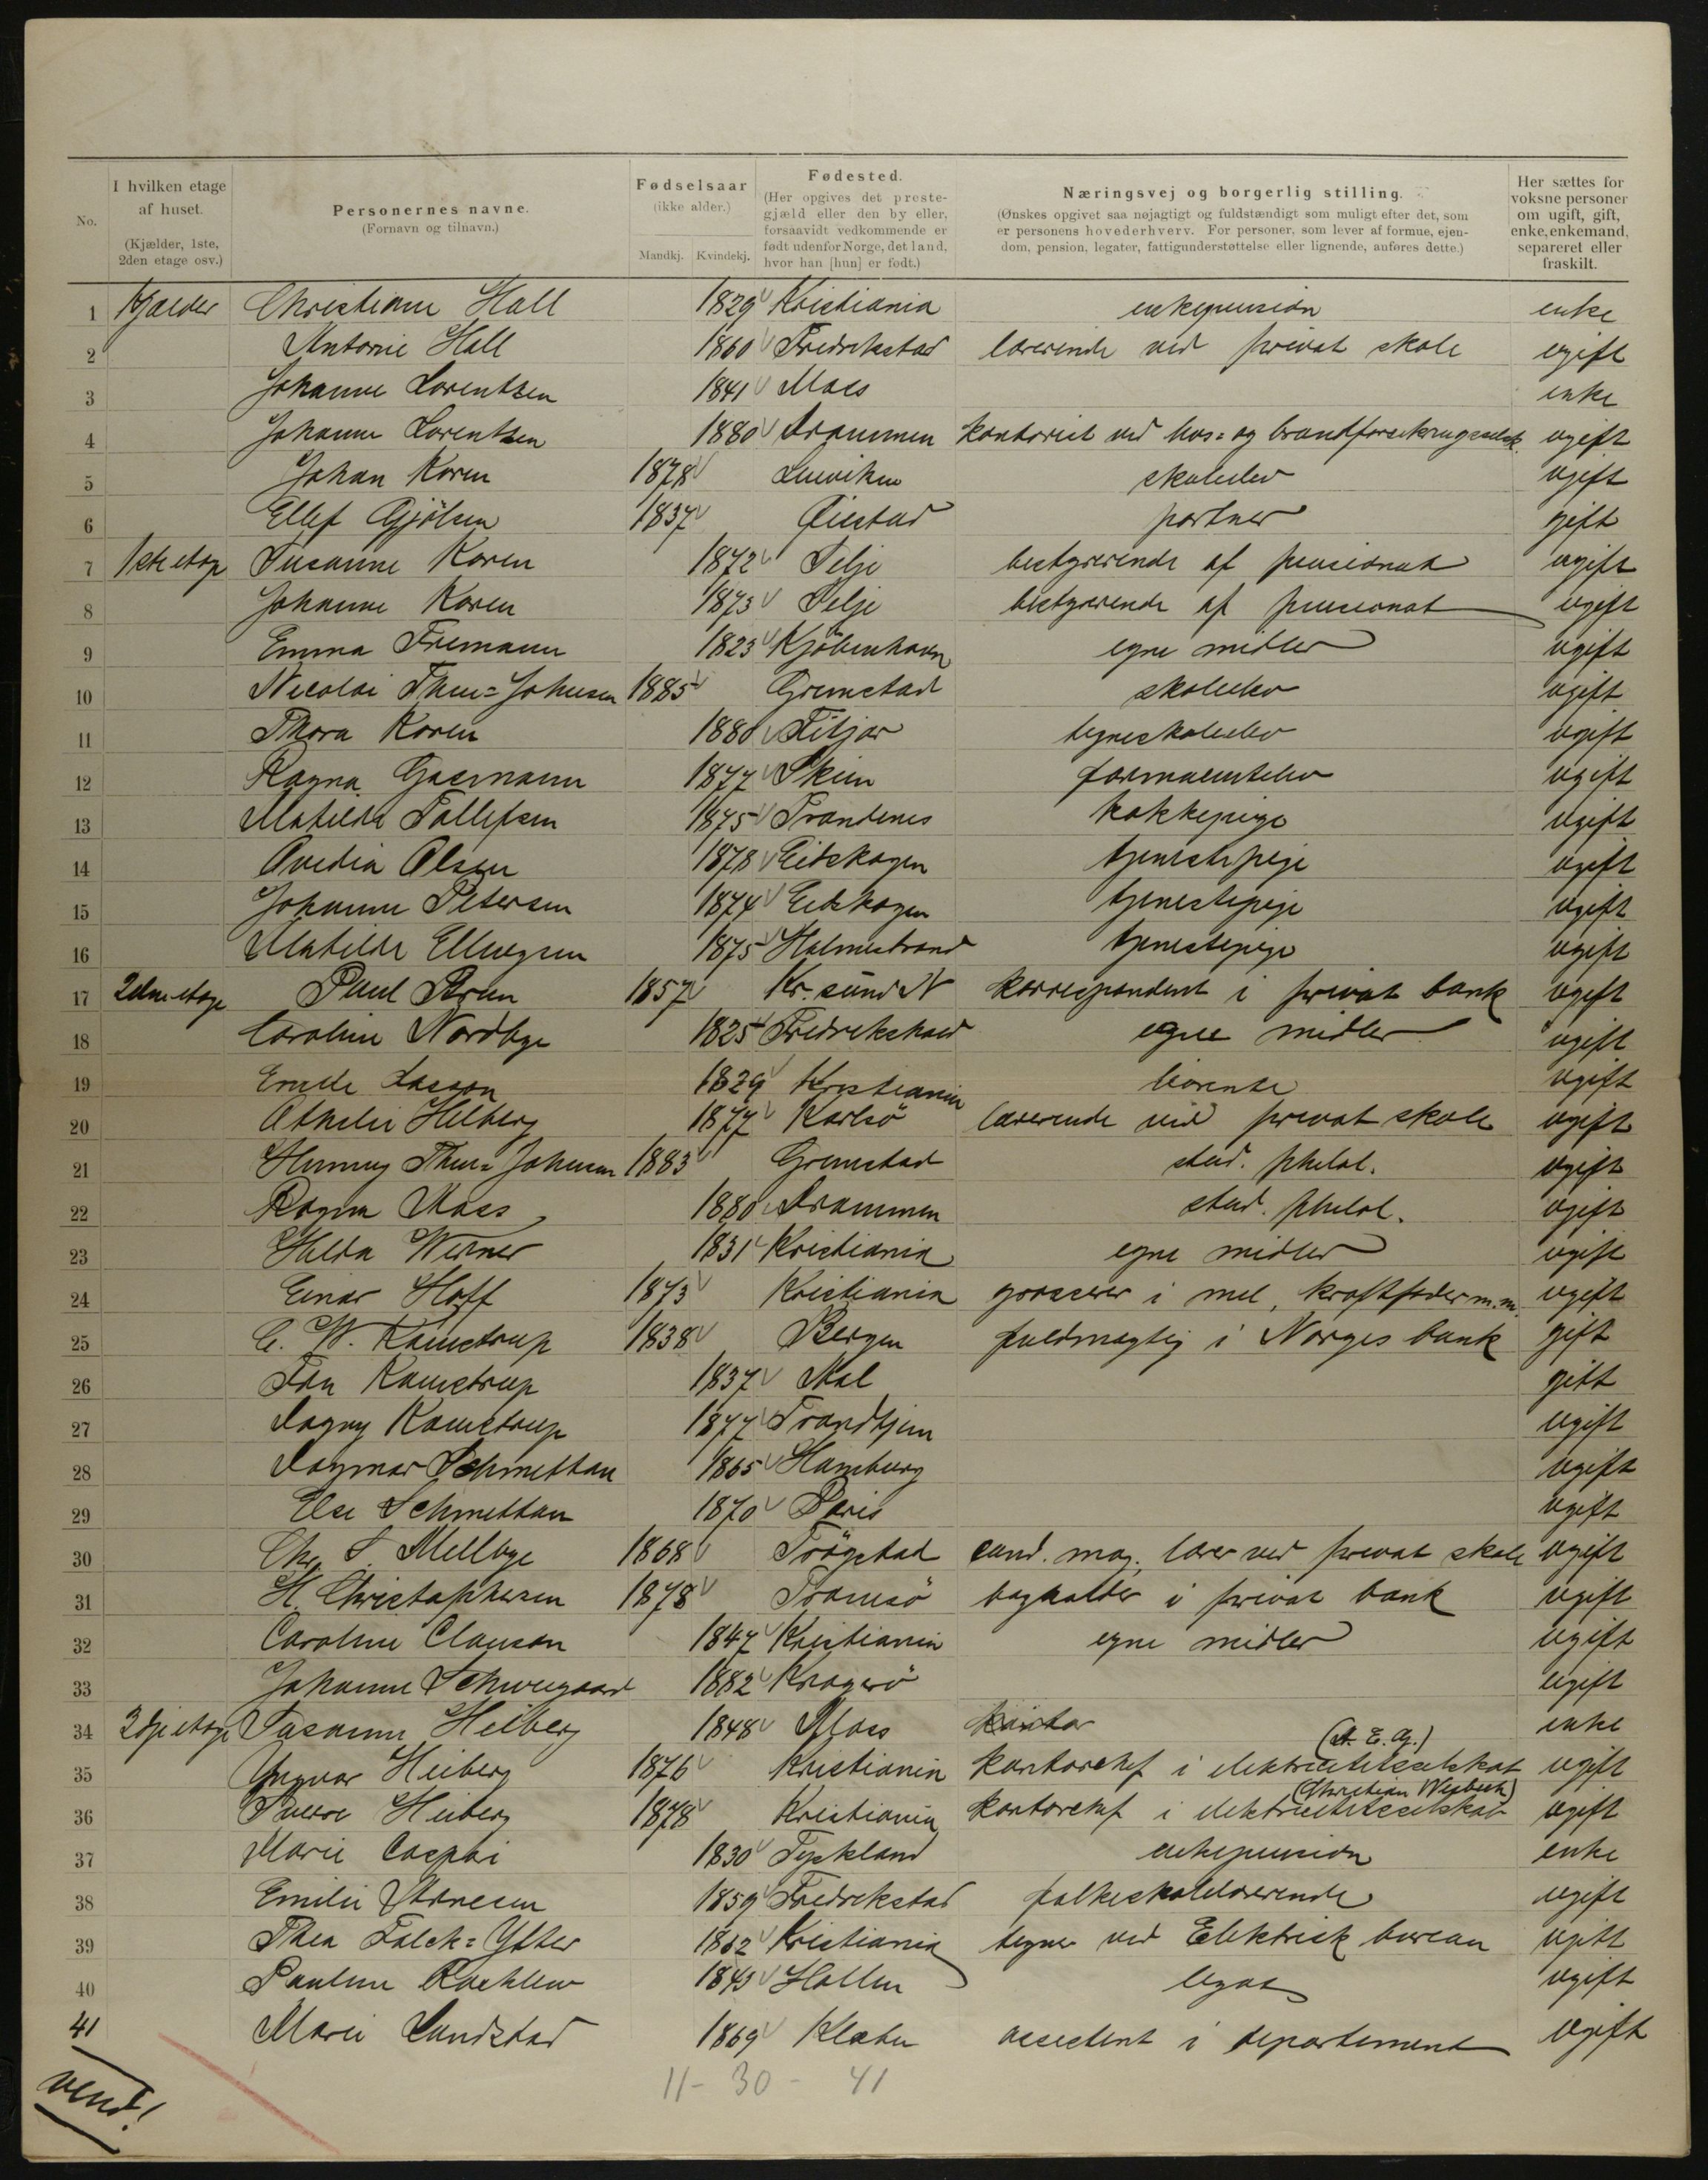 No.
I hvilken etage af huset. (Kjælder, 1ste, 2den etage osv.)
Personernes navne. (Fornavn og tilnavn.)
Fødselsaar (ikke alder.) Mandkj. Kvindekj.
Fødested. (Her opgives det prestegjæld eller den by eller, forsaavidt vedkommende er født udenfor Norge, det land, hvor han [hun] er født.)
Næringsvej og borgerlig stilling. (Ønskes opgivet saa nøjagtigt og fuldstændigt som muligt efter det, som er personens hovederhverv. For personer, som lever af formue, ejendom, pension, legater, fattigunderstøttelse eller lignende, anføres dette.)
Her sættes for voksne personer om ugift, gift, enke, enkemand, separeret eller fraskilt.
1 Kjælder Christiane Hall 1829 Kristiania enkepension enke
2 Antonie Hall 1860 Fredrikstad lærerinde ved privat skole ugift
3 Johanne Lorentzen 1841 Moss enke
4 Johanne Lorentzen 1880 Drammen kontorist ved ugift
5 Johan Koren 1878 skoleelev ugift
6 Ellef Gjølsen 1837 Øiestad portner gift
7 1ste etage Susanne Koren 1872 Selje bestyrerinde af pensionat ugift
8 Johanne Koren 1873 Selje bestyrerinde af pensionat ugift
9 Emma Friemann 1823 Kjöbenhavn egne midler ugift
10 Nicolai Thue=Johnsen 1885 Grimstad skoleelev ugift
11 Thora Koren 1880 Fitjar tegneskoleelev ugift
12 Ragna Gasmann 1877 Skien ugift
13 Mathilde Tollefsen 1875 Trondenes kokkepige ugift
14 Ovedia Olsen 1878 Eidskogen tjenestepige ugift
15 Johanne Petersen 1874 Eidskogen tjenestepige ugift
16 Mathilde Ellingsen 1875 Holmestrand tjenestepige ugift
17 2den etage Paul Brun 1857 Kr.sund N korrespondent i privat bank ugift
18 Caroline Nordbye 1825 Fredrikshald egne midler ugift
19 Emilie Lasson 1829 Kristiania livrente ugift
20 Othelie Heiberg 1877 Karlsö lærerinde ved privat skole ugift
21 Henning Thue=Johnsen 1883 Grimstad stud. philol. ugift
22 Ragna Moss 1880 Drammen stud. philol. ugift
23 Hilda Werner 1831 Kristiania egne midler ugift
24 Einar Hoff 1873 Kristiania grosserer i mel, kraftfoder m.m. ugift
25 C. W. Kamstrup 1838 Bergen fuldmægtig i Norges bank gift
26 Kamstrup 1837 gift
27 Dagny Kamstrup 1877 Trondhjem ugift
28 Dagmar Schmettau 1865 Hamburg ugift
29 Else Schmettau 1870 Paris ugift
30 Chr. S. Mellbye 1868 Trögstad cand. mag. lærer ved privat skole ugift
31 H. Christophersen 1878 Tromsö bogholder i privat bank ugift
32 Caroline Clauson 1847 Kristiania egne midler ugift
33 Johanne Schweigaard 1882 Kragerö ugift
34 3dje etage Susanne Heiberg 1848 Moss enke
(A. E. G.)
35 Yngvar Heiberg 1876 Kristiania kontorchef i elektricitetsselskab ugift
36 Sverre Heiberg 1878 Kristiania kontorchef i elektricitetsselskab ugift
37 Marie Caspari 1830 Tyskland enkepension enke
38 Emilie 1859 Fredrikstad folkeskolelærerinde ugift
39 Thea Falck=Ytter 1862 Kristiania tegner ved Elektrisk bureau ugift
40 Pauline 1843 Hollen legat ugift
41 Marie Landstad 1869 Klæbu assistent i departement ugift
11 - 30 - 41
vend!